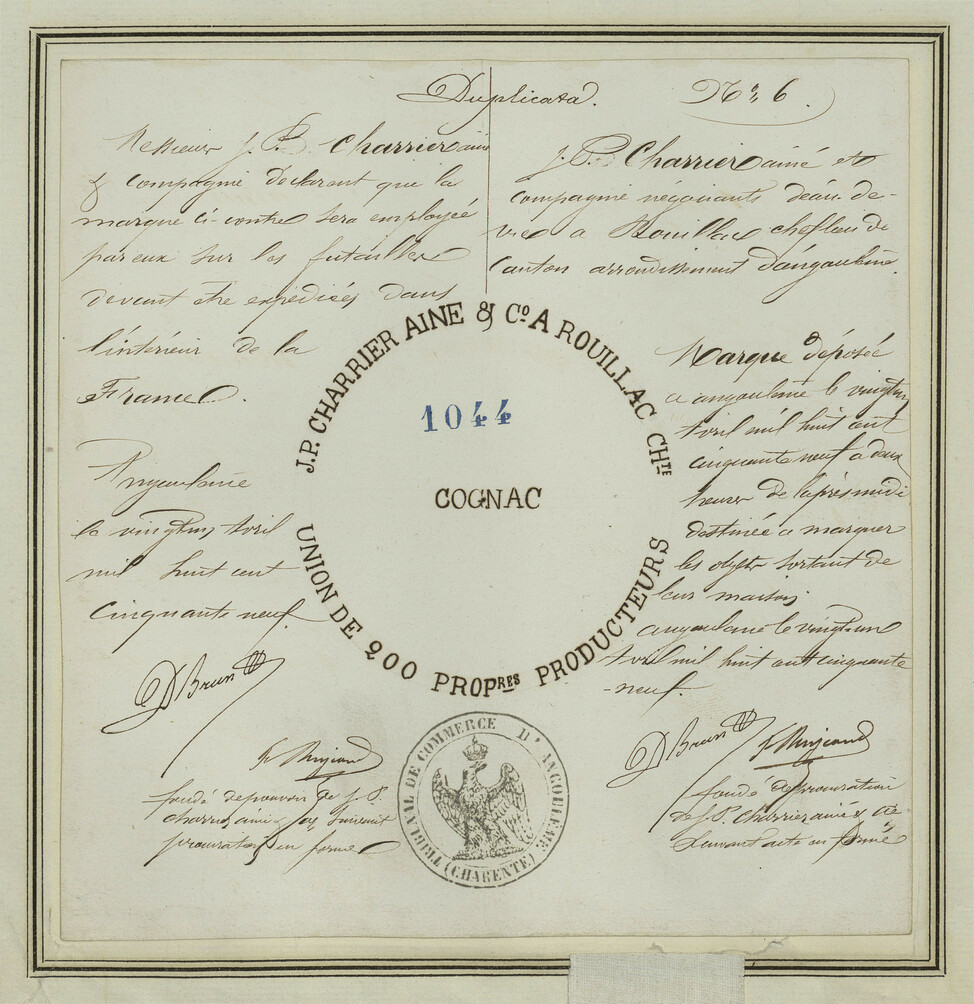 Duplicata.
N° 6.
Messieurs J. P. Charrier ainé
& compagnie déclarent que la
marque ci-contre sera employée
par eux sur les futailles
devant être expédiées dans
l'intérieur de la
France.
Angoulême
le vingt un Avril
mil huit cent
cinquante neuf.
D Brun
fondé de pouvoir de J. P.
Charrier ainé & Cie suivant
procuration en forme
J. P. Charrier ainé et
compagnie négociants d'eau-de-
vie a Rouillac chef lieu de
canton arrondissement d'angoulême.
Marque déposée
a angoulême le vingt un
Avril mil huit cent
cinquante neuf a deux
heures de l'après midi
destinée a marquer
les objets sortant de
leur maison.
angoulême le vingt un
Avril mil huit cent cinquante
-neuf.
D Brun
fondé de procuration
de J. P. Charrier ainé & Cie
suivant acte en forme
J.P. CHARRIER AINE & Cº A ROUILLAC CHTE
1044
COGNAC
UNION DE 200 PROPRES PRODUCTEURS
TRIBUNAL DE COMMERCE D'ANGOULÊME
(CHARENTE)